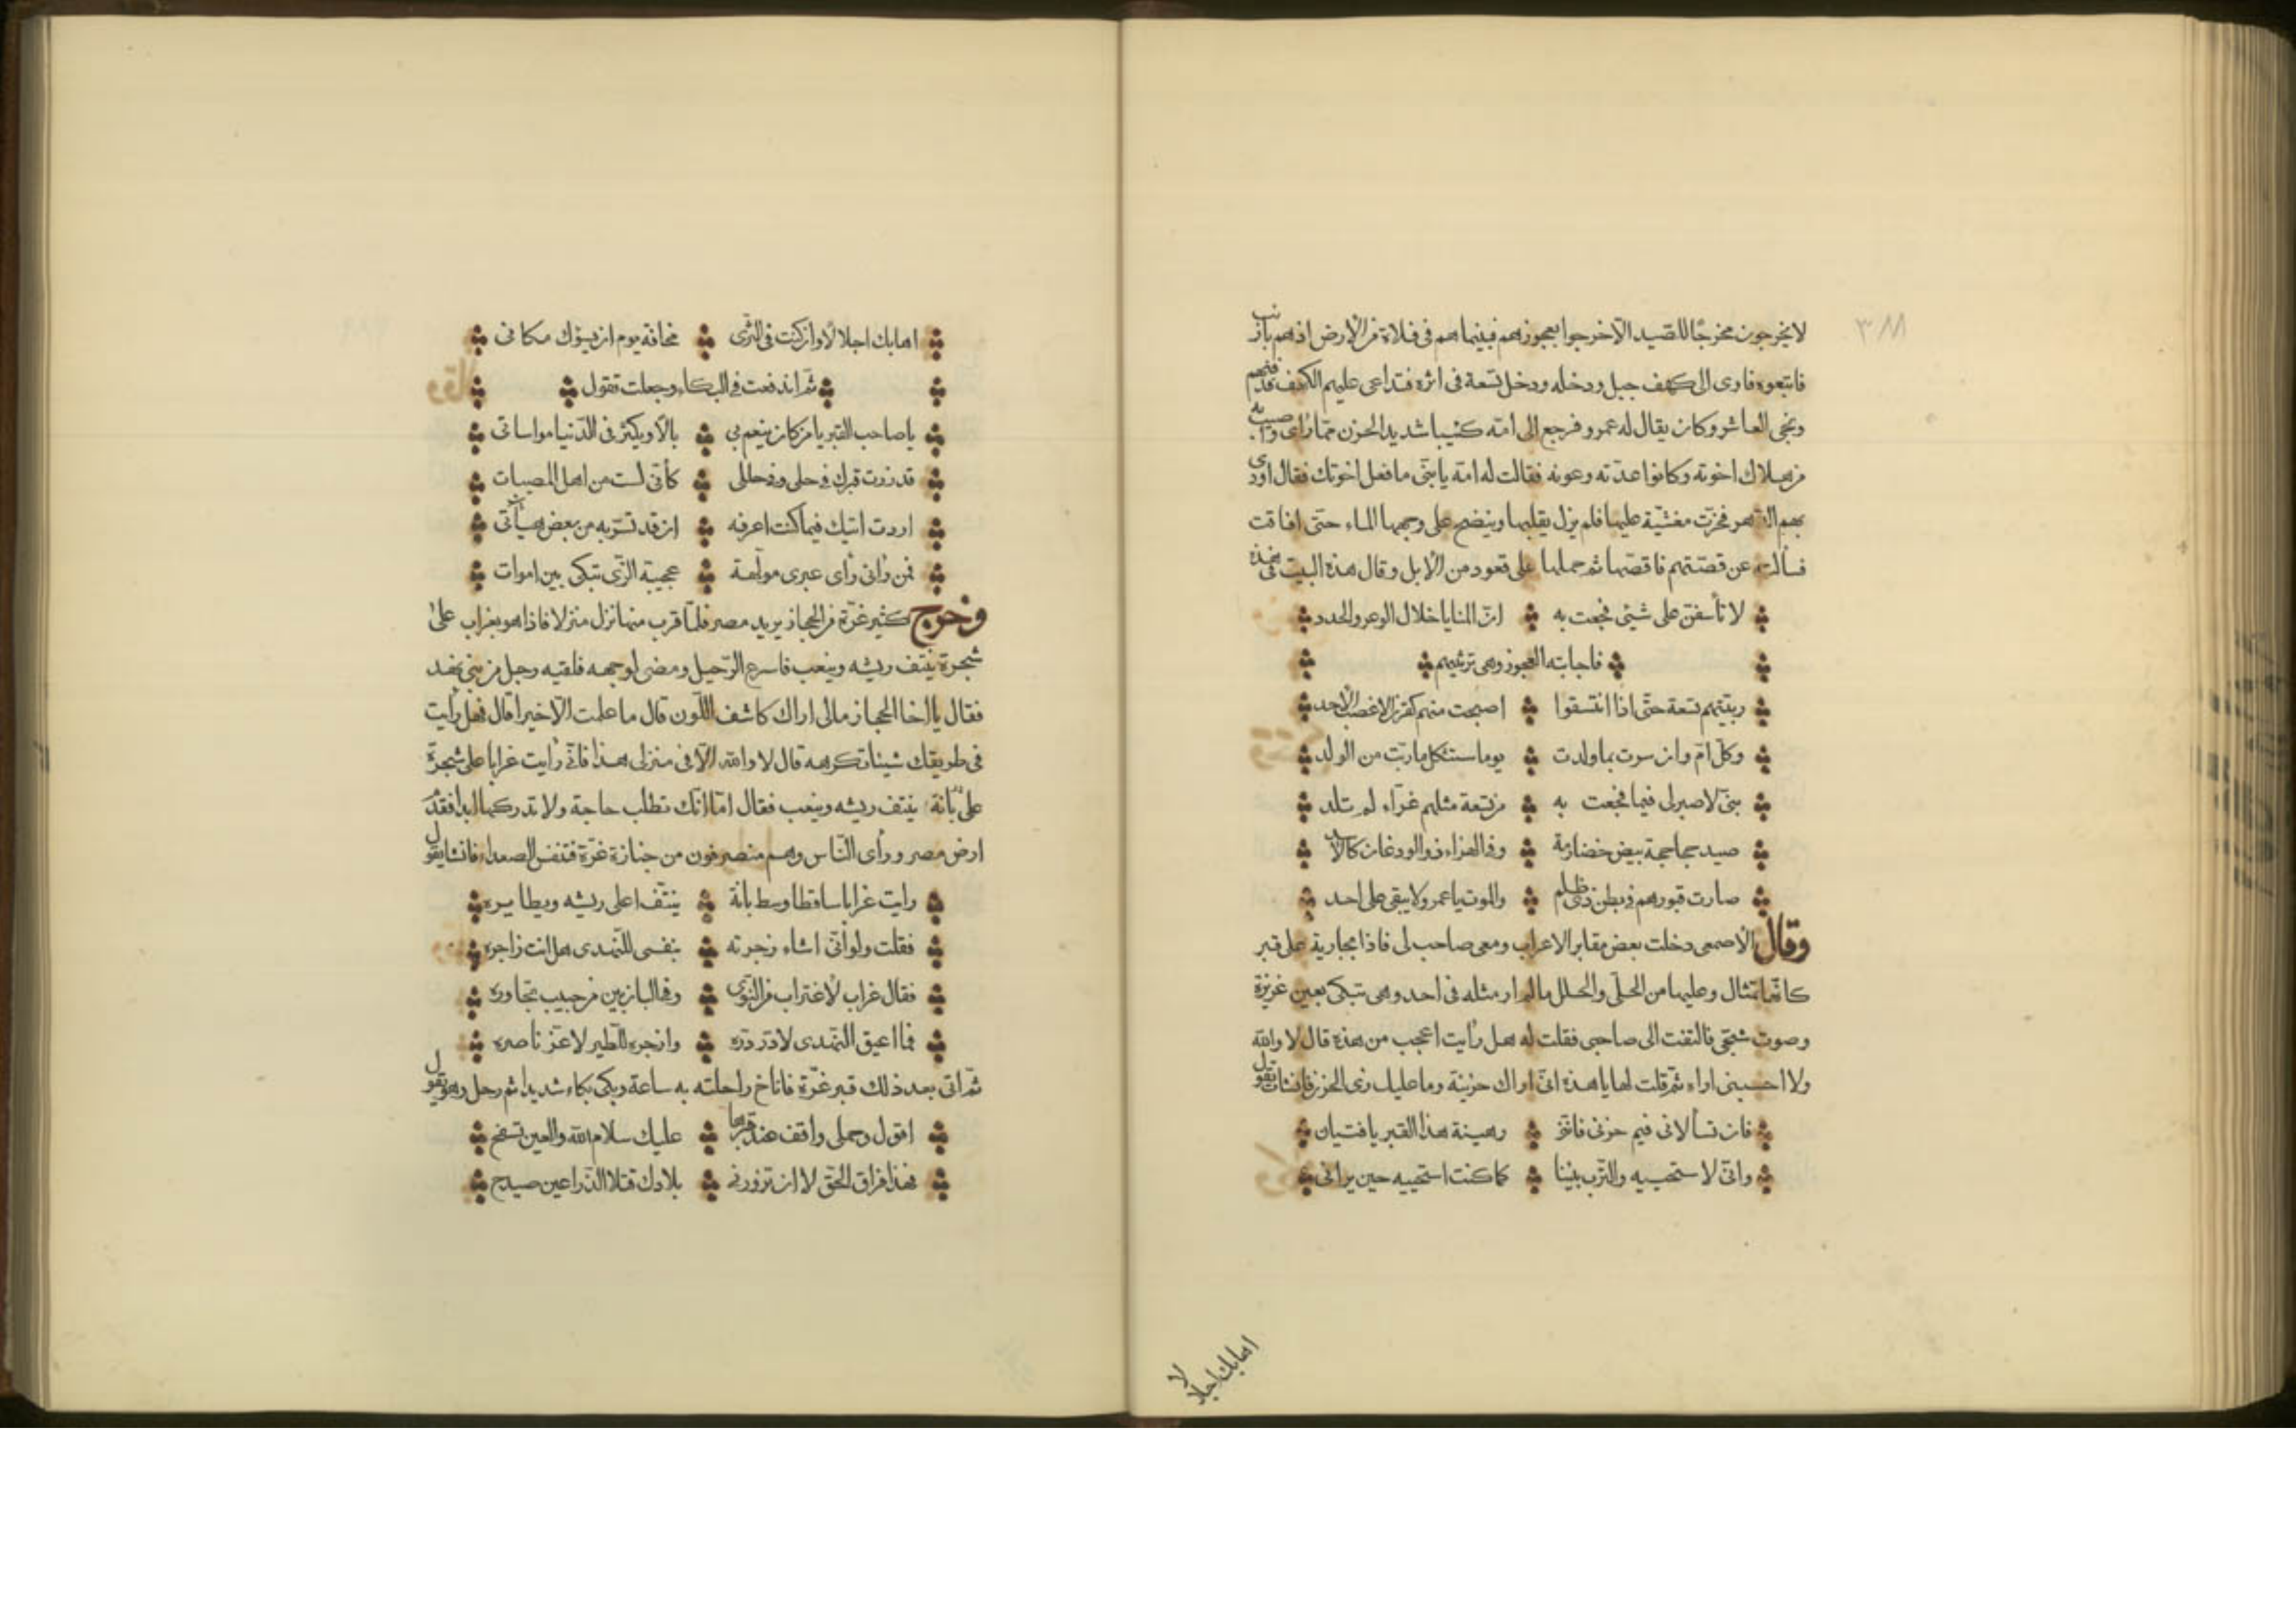 ٣٨٨
لا يخرجون مخرجًا للصّيد الّا خرجوا بعجوزهم فبينما هم فى فلاة من الارض اذ هم بارنب
فاتبعوه فاوى الى كهف جبل ودخله ودخل تسعة فى اثره فتداعى عليهم الكهف
ونجى العاشر وكان يقال له عمرو فرجع الى امّه كئيبا شديد الحزن ممّا رأى واصيب به
من هلاك اخوته وكانوا عدّته وعونه فقالت له امّه يا بنىّ ما فعل اخوتك فقال اودى
بهم الدّهر فخرّت مغشيّة عليها فلم يزل يقلبها وينضح على وجهها الماء حتّى افاقت
فسألته عن قصّتهم فاقصّها ثم حملها على قعود من الابل وقال هذه البيت
لا تأسفنّ على شيئى فجعت به انّ المنايا خلال الوعر والجدد
فاجابته العجوز وهى ترثيهم
ربيّتهم تسعة حتّى اذا اتّسقوا اصبحت منهم كقرن الاعضب الاحد
وكلّ امّ وان سرت بما ولدت يوما ستثكل ما ربّت من الولد
بنىّ لا صبر لى فيما فجعت به من تسعة مثلهم غرّاء لم تلد
صيد جحاجحة بيض خضارمة وفى الهزاء
صارت قبورهم فى بطن والموت يا عمرو لا يبقى على احد
وقال الاصمعى دخلت بعض مقابر الاعراب ومعى صاحب لى فاذا بجارية على قبر
كانّها تمثال وعليها من الحلى والحلل ما لم ار مثله فى احد وهى تبكى بعين غزيرة
وصوت شجّى فالتفت الى صاحبى فقلت له هل رأيت اعجب من هذه قال لا والله
ولا احسبنى اراه ثمّ قلت لها يا هذه انّى اراك حزينة وما عليك زى الحزن فانشات تقول
فان تسألانى فيم حزنى فانّنى رهينة هذا القبر يا فتيان
وانّى لاستحييه والتّرب بيننا كما كنت استحييه حين يرانى
اهابك اجلالا
اهابك اجلالا وان كنت فى الثّرى مخافة يوم ان يسؤك مكانى
ثمّ اندفعت فى البكاء وجعلت تقول
يا صاحب القبر يا من كان ينعم بى بالا ويكثر فى الدّنيا مواساتى
قد زرت قبرك فى حلى وفى حللى كأنّى لست من اهل المصيبات
اردت اتيك فيما كنت اعرفه ان قد تسرّ به من بعض هيأتى
فمن رأنى رأى عبرى مولّهة عجيبة الزّى تبكى بين اموات
وخرج كثير غرّة من الحجاز يريد مصر فلمّا قرب منها نزل منزلا فاذا هو بغراب على
شجرة ينتف ريشه وينعب فاسرع الرّحيل ومضى لوجهه فلقيه رجل من بنى نهد
فقال يا اخا الحجاز مالى اراك كاشف اللّون قال ما علمت الّا خيرا قال فهل رأيت
فى طريقك شيئا تكرهه قال لا والله الّا فى منزلى هذا فانّى رأيت غرابا على شجرة
على بانة ينتف ريشه وينعب فقال امّا انّك تطلب حاجة ولا تدركها ابدا فقدم
ارض مصر ورأى النّاس وهم منصرفون من جنازة غرّة فتنفس الصعداء فانشا يقول
رايت غرابا ساقطا وسط بانة ينتّف اعلى ريشه ويطايره
فقلت ولو أنّى اشاء زجرته بنفسى للنّهدى هل انت زاجره
فقال غراب لاغتراب من النوى وفى البان بين من حبيب تجاوره
فما اعيق النّهدى لا درّ درّه وازجره للطّير لا عزّ ناصره
ثمّ اتى بعد ذلك قبر غرّة فاناخ راحلته به ساعة وبكى بكاء شديدا ثم رحل وهو يقول
اقول وجملى واقف عند قبرها عليك سلام الله والعين تسفح
فهذا فراق الحقّ لا ان تزورنى بلادك فتلا الذّراعين صيدح